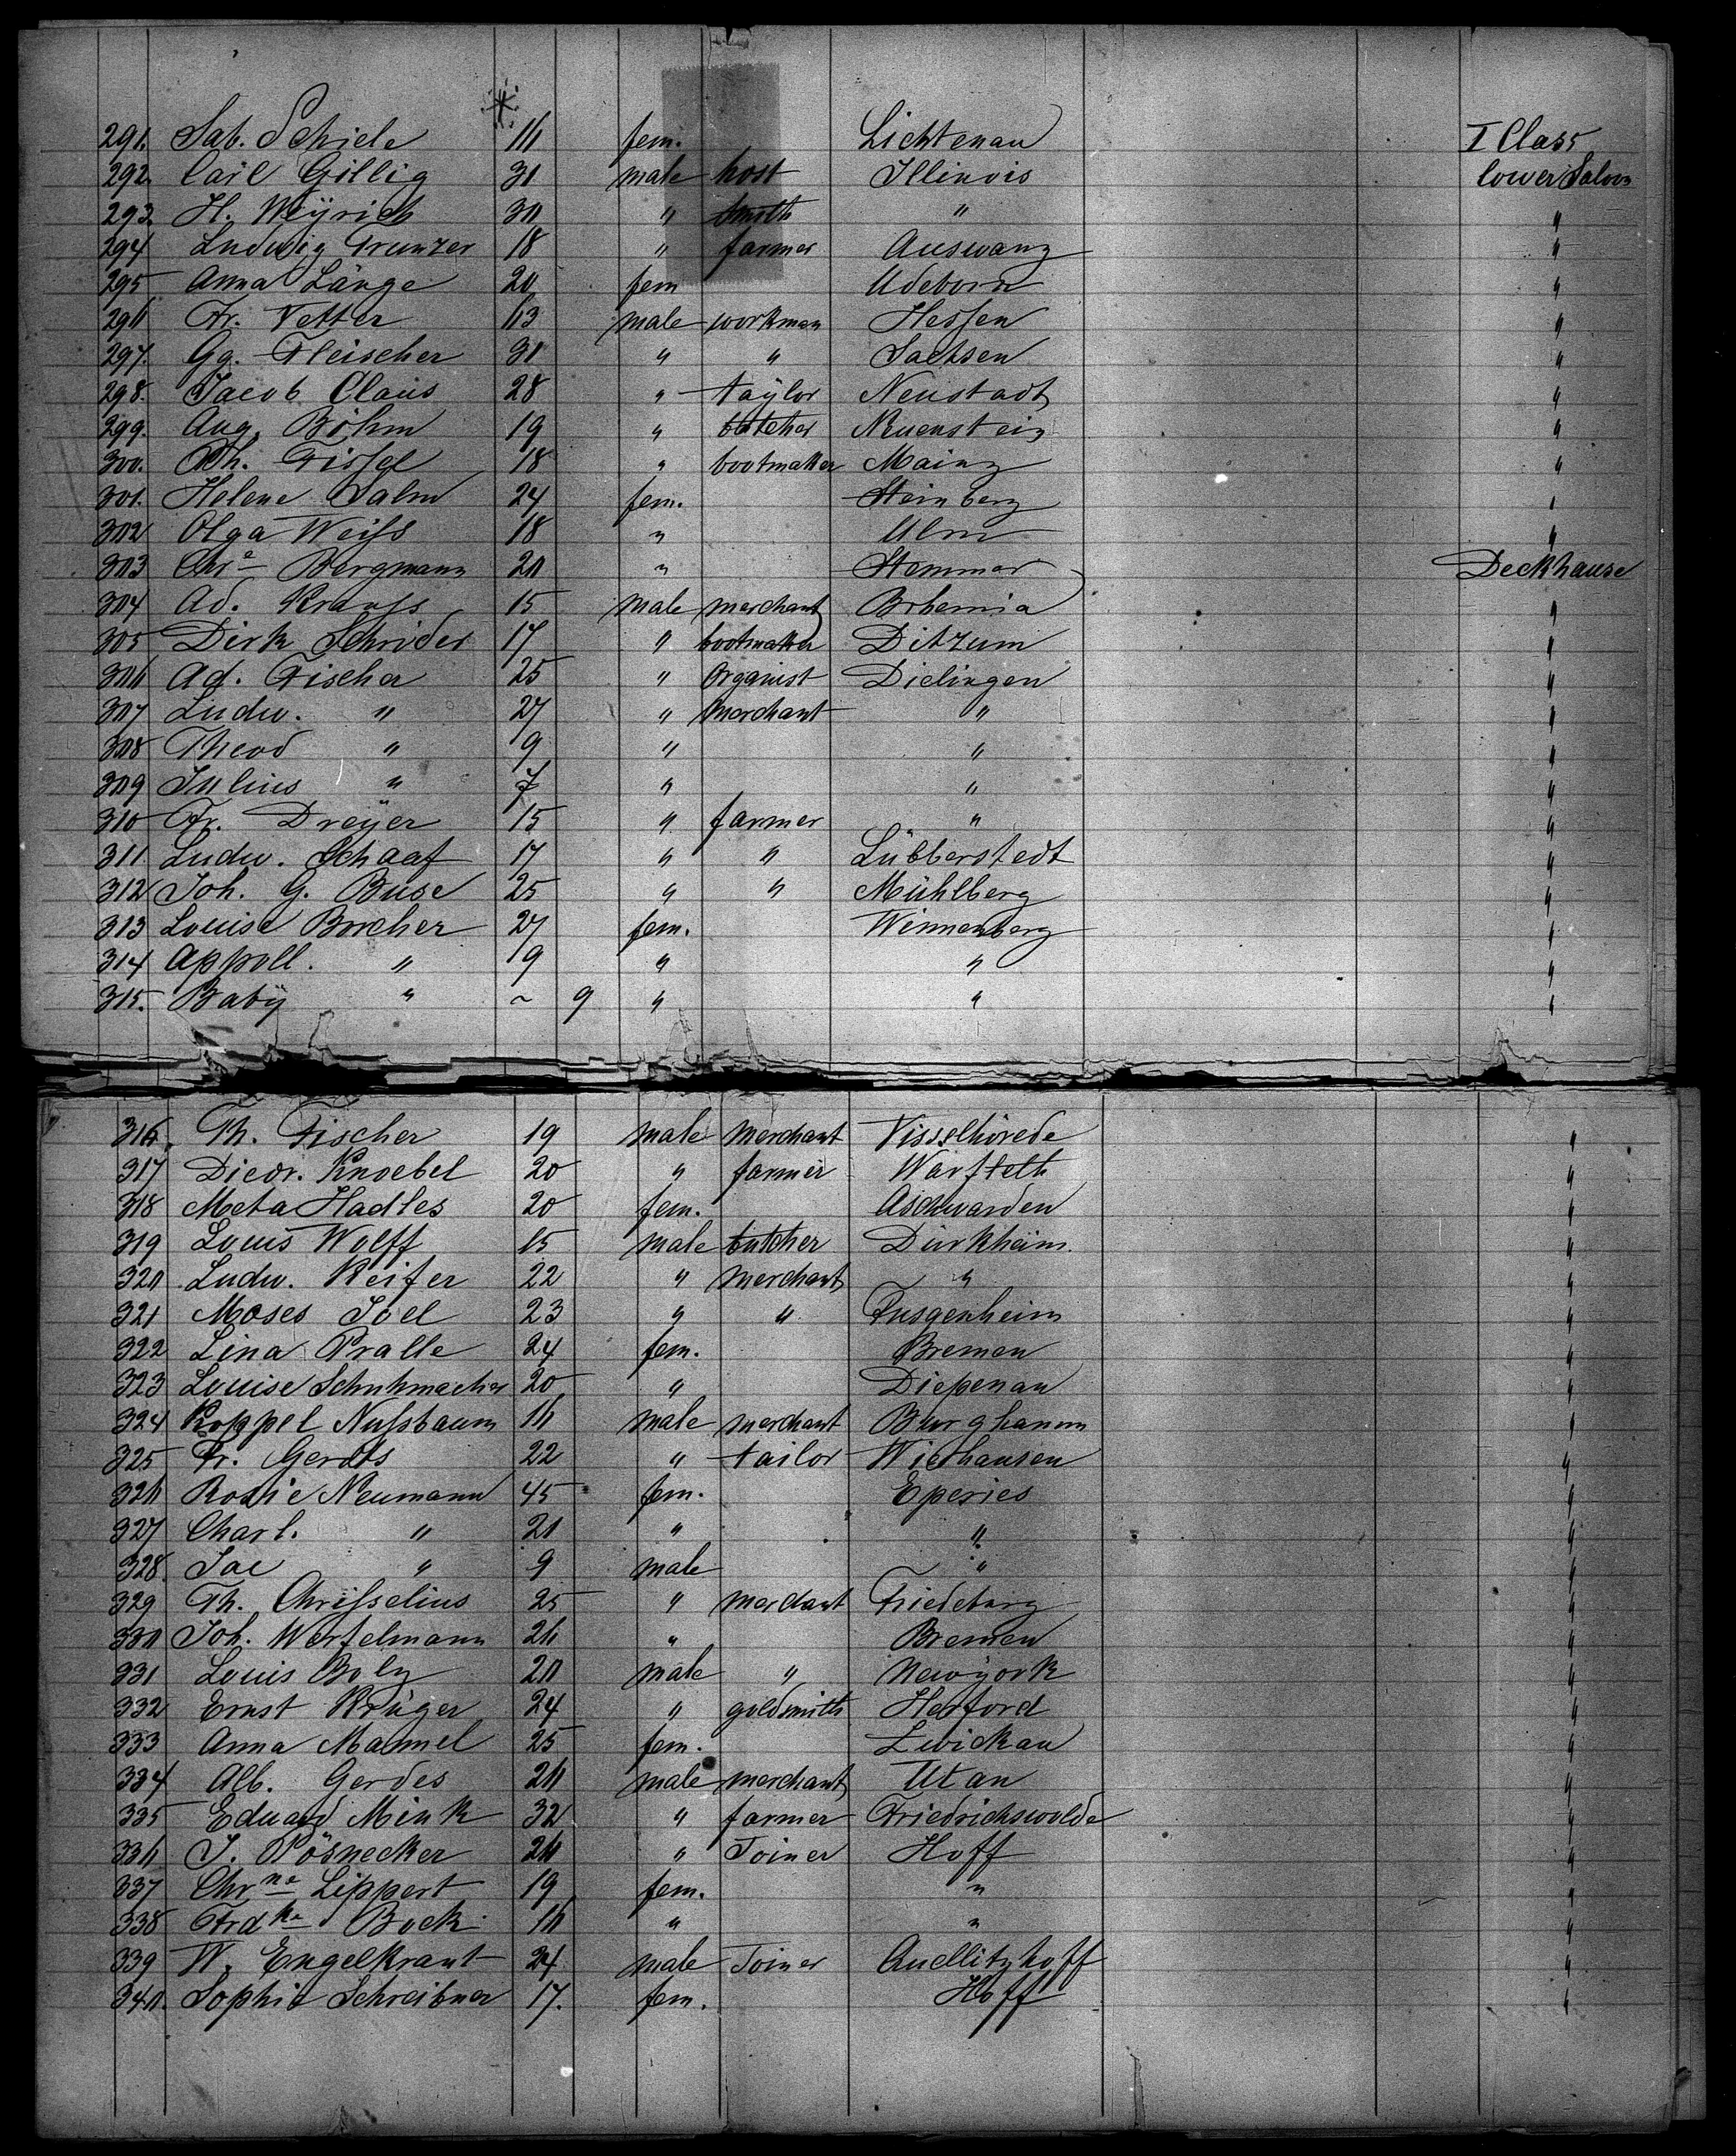 291. Sab. Schiele 16 fem. Lichtenau I Class
292. Carl Gillig 31 male host Illinois lower Saloon
293. H. Weÿrich 30 " smith " "
294 Ludwig Trunzer 18 " farmer Auswang "
295 Anna Länge 20 fem Udeborn "
296 Fr. Vetter 63 male workman Hessen "
297. Gg. Fleischer 30 " " Sachsen "
298. Jacob Claus 28 " taÿlor Neustadt "
299. Aug. Böhm 19 " butcher Neuenstein "
300. Ph. Fissel 18 " bootmaker Mainz "
301. Helene Salm 24 fem. Steinberg "
302 Olga Weiss 18 " Ulm "
303 Chre Bergmann 20 " Stemmer Deckhause
304 Ad. Krauss 15 male merchant Bohemia "
305 Dirk Schrider 17 " bootmaker Ditzum "
306 Ad. Fischer 25 " Organist Dielingen "
307 Ludw. " 27 " Merchant " "
308 Theod " 9 " " "
309 Julius " 7 " " "
310 Fr. Dreÿer 15 " farmer " "
311. Ludw. Schaaf 17 " " Lübberstedt "
312 Joh. G. Buse 25 " " Mühlberg "
313 Louise Borcher 27 fem. Winnenberg "
314 Appoll. " 9 " " "
315. Babÿ " ~ 9 " " "
316. Th. Fischer 19 male Merchant Visselhövede "
317 Diedr. Knoebel 20 " farmer Warfleth "
318 Meta Hadles 20 fem. Aschwarden "
319 Louis Wolff 15 male butcher Dürkheim. "
320 Ludw. Reifer 22 " Merchant " "
321 Moses Joel 23 " " Fusgenheim "
322 Lina Pralle 24 fem. Bremen "
323 Louise Schuhmacher 20 " Diepenau "
324 Koppel Nussbaum 16 male merchant Burghaunn "
325 Fr. Gerdts 22 " tailor Wiethausen "
326 Rosie Neumann 45 fem. Eperies "
327 Charl. " 21 " " "
328. Jac " 9 male " "
329 Th. Chrisselius 25 " merchant Friedeburg "
330 Joh. Werfelmann 26 " Bremen "
331 Louis Bolz 20 male " Newÿork "
332 Ernst Krüger 24 " goldsmith Herford "
333 Anna Mamel 25 fem. Zwickau "
334 Alb. Gerdes 26 male merchant Utan "
335 Eduard Mink 32 " farmer Friedrichswolde "
336 J. Pösnecker 26 " Joiner Hoff "
337 Chrne Lippert 19 fem. " "
338 Frdke Bock 16 " " "
339 W. Engelkraut 24 male Joiner Quellitzhoff "
340. Sophie Schreibner 17. fem. Hoff "